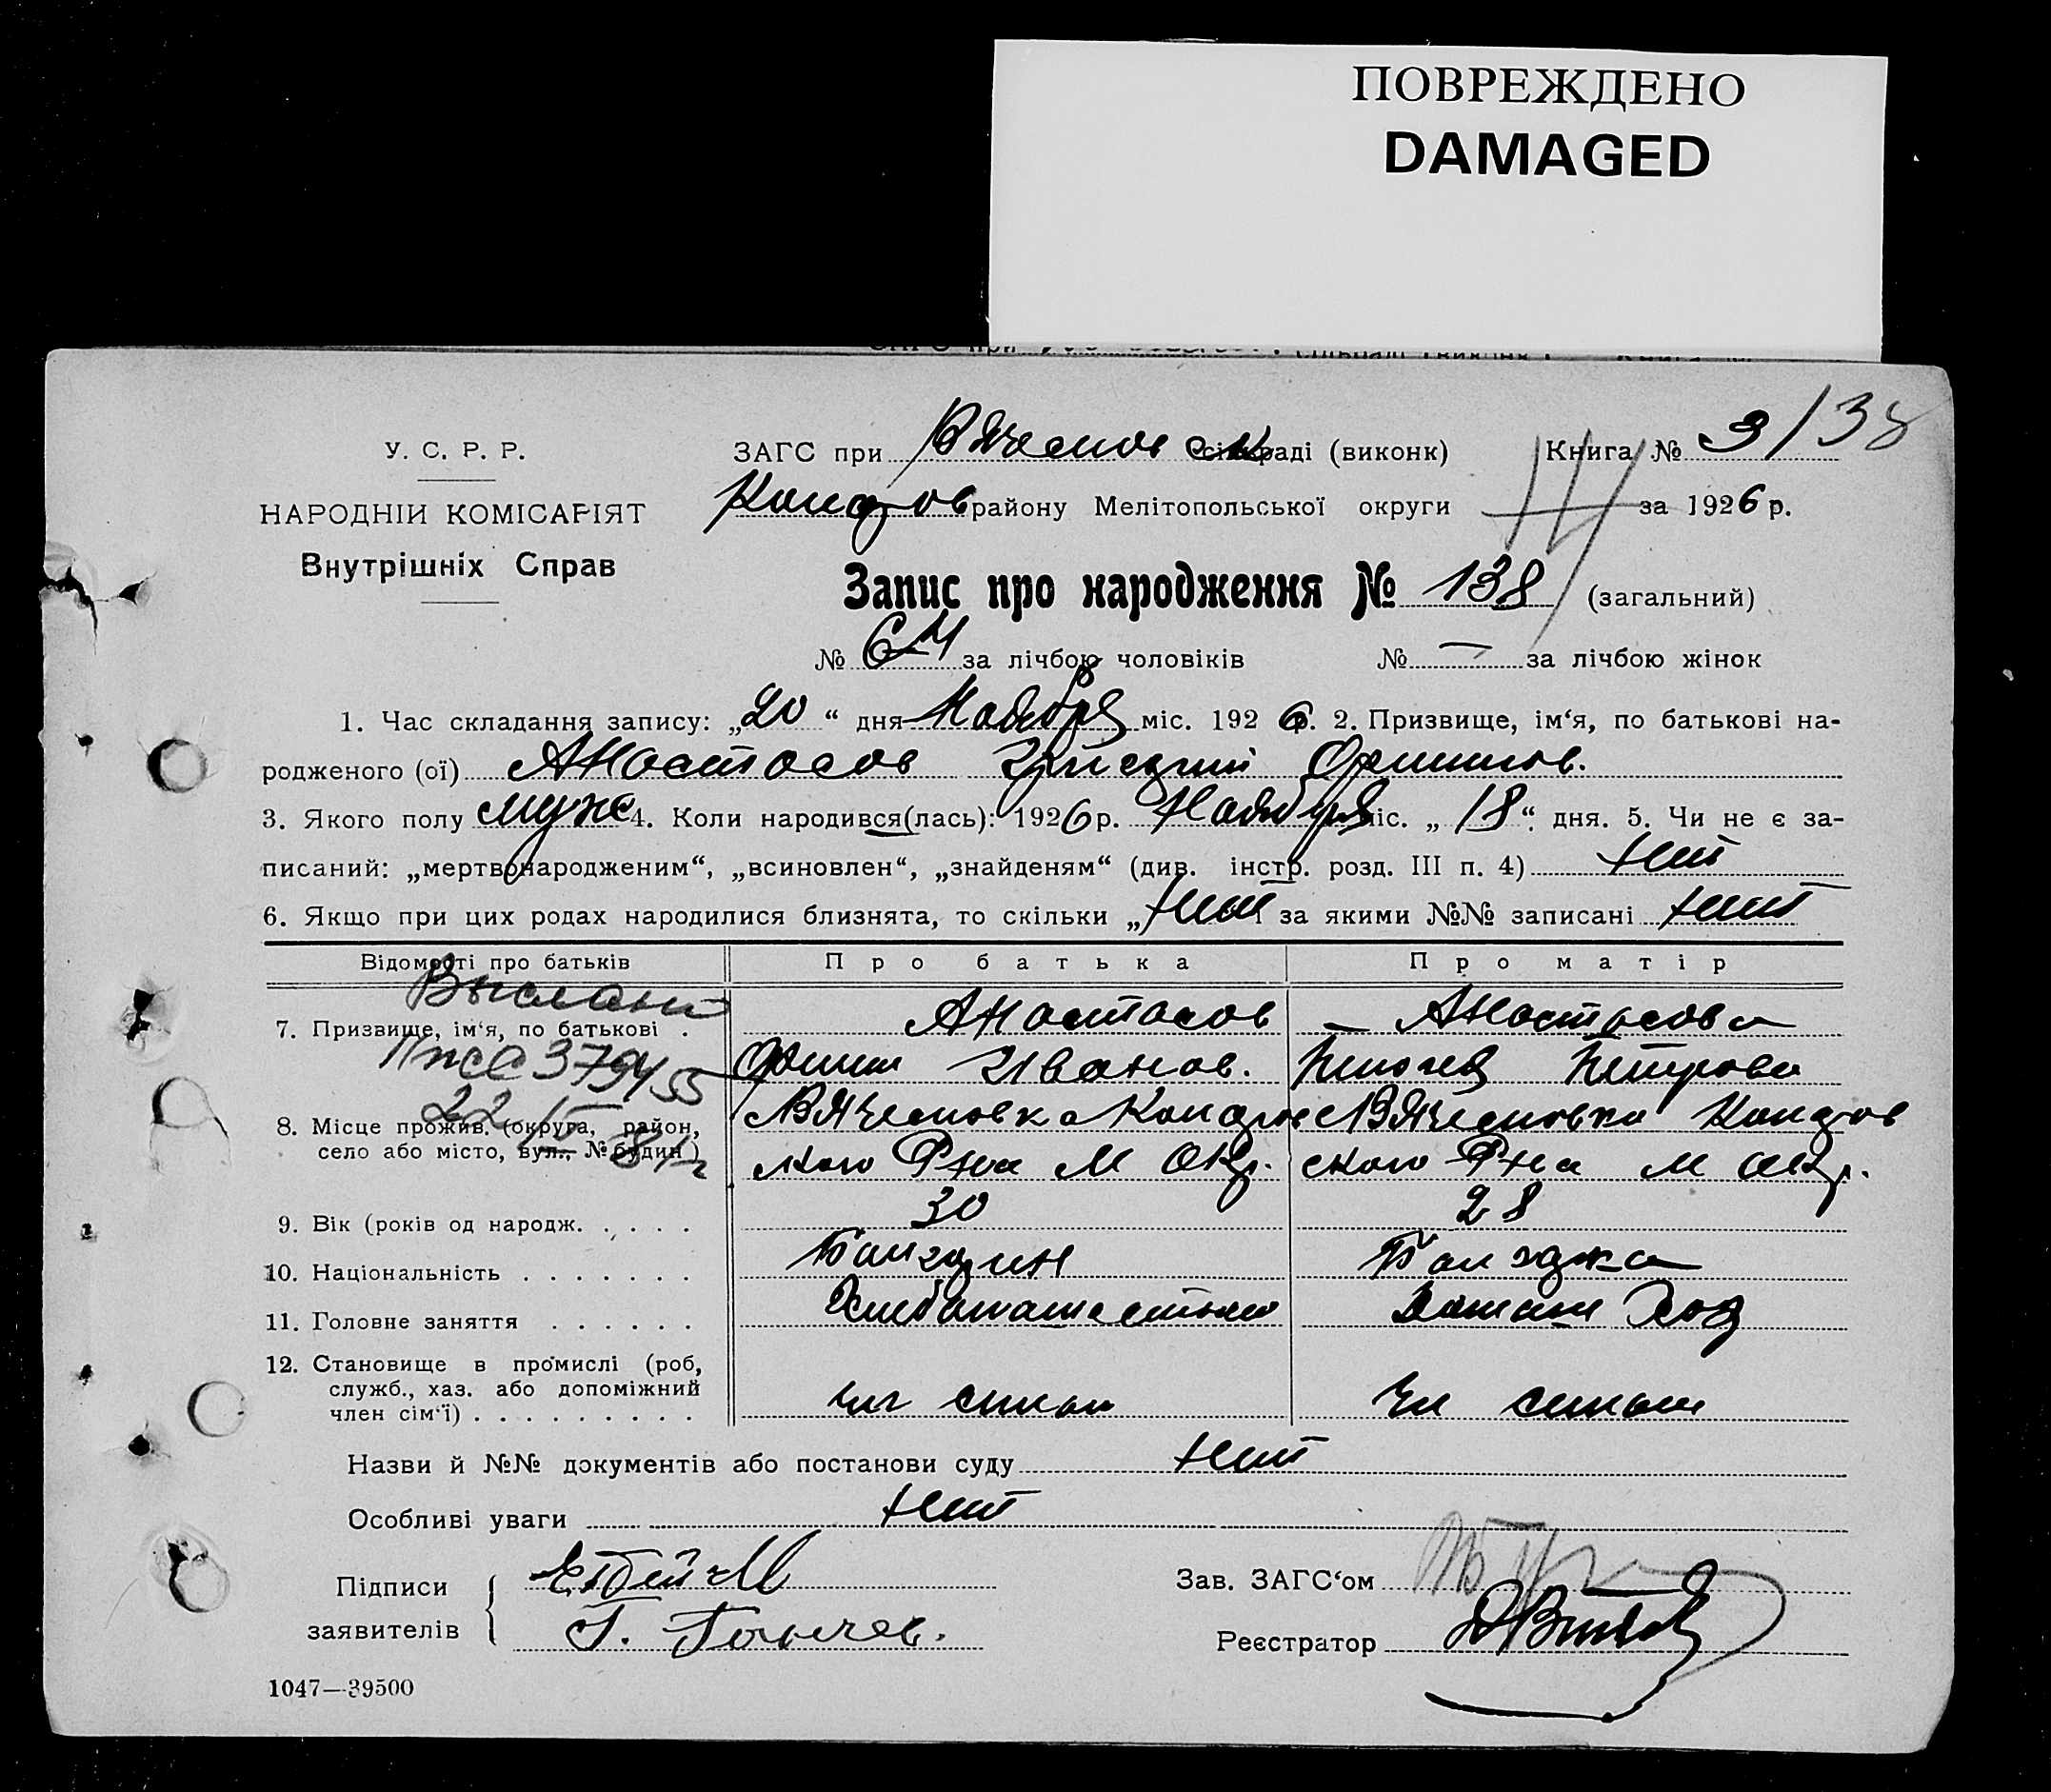 ПОВРЕЖДЕНО
DAMAGED
У. С. Р. Р.
НАРОДНІЙ КОМІСАРІЯТ
Внутрішніх Справ
ЗАГС при сільраді (виконк) Книга № 3/38
району Мелітопольської округи за 1926 р.
Запис про народження № 138 (загальний)
№ за лічбою чоловіків № — за лічбою жінок
1. Час складання запису: „20“ дня Ноября міс. 1926 р. 2. Призвище, ім‘я, по батькові на-
родженого (ої) Анастасов
3. Якого полу муж 4. Коли народився(лась): 1926 р. Ноября міс. „18“ дня. 5. Чи не є за-
писаний: „мертвонародженим“, „всиновлен“, „знайденям“ (див. інстр. розд. III п. 4) нет
6. Якщо при цих родах народилися близнята, то скільки „нет за якими №№ записані нет
Відомості про батьків Про батька Про матір
7. Призвище, ім‘я, по батькові Анастасов Анастасова
Иванов. Петрова
8. Місце прожив. (округа, район,
село або місто, вул., № будин)
Вячесловка Вячесловка
ского Р-на М Окр. ского Р-на М Окр.
9. Вік (років од народж. 30 28
10. Національність Болгарин Болгарка
11. Головне заняття Хлебопашество Домаш Хоз
12. Становище в промислі (роб,
служб., хаз. або допоміжний
член сім‘ї) Чл семьи Чл семьи
Назви й №№ документів або постанови суду нет
Особливі уваги нет
Підписи
заявителів
Г.
Зав. ЗАГС‘ом
Реєстратор
1047—39500